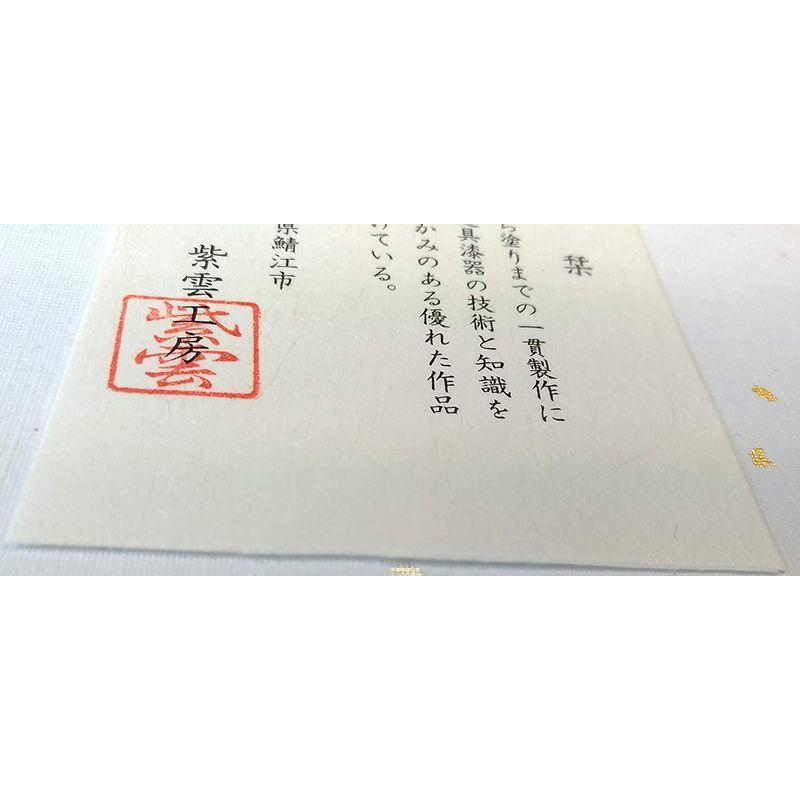 栞
ら塗りまでの一貫製作に
具漆器の技術と知識を
かみのある優れた作品
けている。
県鯖江市
紫雲工房
紫雲